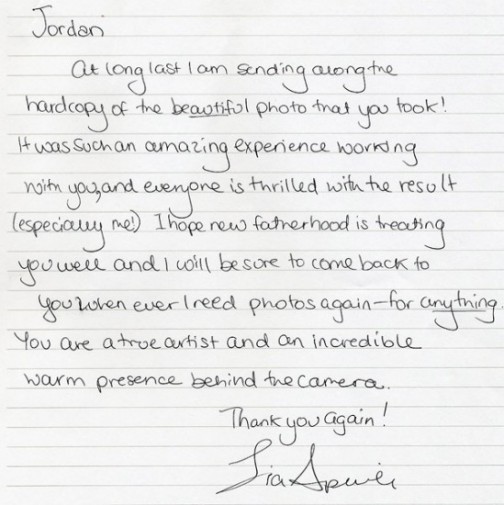 Jordan
At long last I am sending along the
hardcopy of the beautiful photo that you took!
It was such an amazing experience working
with you, and everyone is thrilled with the result
(especially me!) I hope new fatherhood is treating
you well and I will be sure to come back to
you when ever I need photos again - for anything.
You are a true artist and an incredible
warm presence behind the camera.
Thank you again!